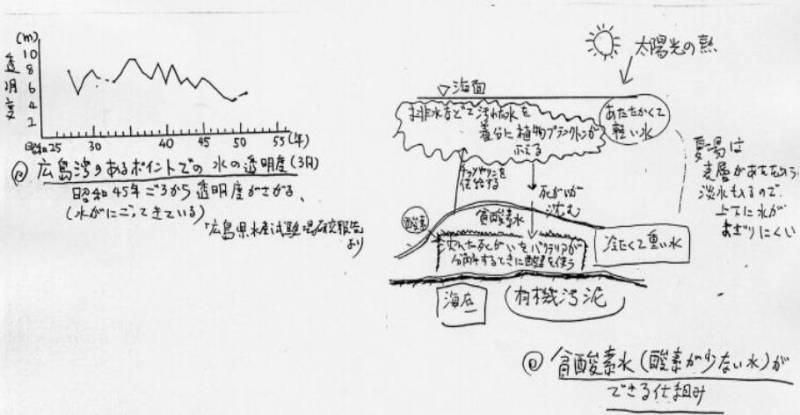 (m)
透明度
10
8
6
4
2
昭和25 30 35 40 45 50 55(年)
広島湾のあるポイントでの水の透明度(3月)
昭和45年ごろから透明度がさがる
(水がにごってきている)
「広島県水産試験場研究報告」
より
太陽光の熱
▽海面
排水などで汚れた水を
養分に植物プランクトンが
ふえる
あたたかくて
軽い水
夏場は
表層があたたまり
淡水も入るので、
上下に水が
まざりにくい
死がいが
沈む
酸素
貧酸素水
沈んだ死がいをバクテリアが
分解するときに酸素を使う
冷たくて重い水
海底
有機汚泥
貧酸素水(酸素が少ない水)が
できる仕組み